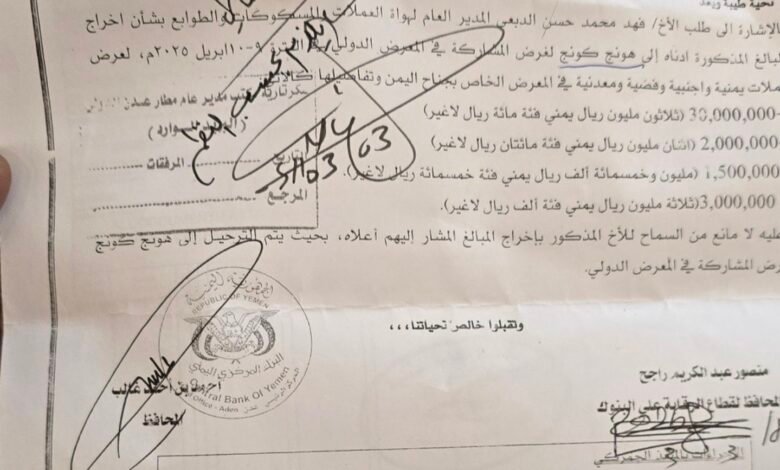 تحية طيبة وبعد
بالإشارة الى طلب الأخ/ فهد محمد حسن الديعي المدير العام لهواة العملات المسكوكات والطوابع بشأن اخراج
لمبالغ المذكورة ادناه إلى هونج كونج لغرض المشاركة في المعرض الدولي في الفترة ٩-١٠ ابريل ٢٠٢٥م، لعرض
عملات يمنية واجنبية وفضية ومعدنية في المعرض الخاص بجناح اليمن وتفاصيلها
30,000,000 (ثلاثون مليون ريال يمني فئة مائة ريال لاغير)
2,000,000 (اثنان مليون ريال يمني فئة مائتان ريال لاغير)
1,500,000 (مليون وخمسمائة ألف ريال يمني فئة خمسمائة ريال لاغير).
3,000,000 (ثلاثة مليون ريال يمني فئة ألف ريال لاغير).
مكتب مدير عام مطار عدن الدولي
التاريخ
المرفقات
المرجع
عليه لا مانع من السماح للأخ المذكور بإخراج المبالغ المشار إليهم أعلاه، بحيث يتم الترحيل إلى هونج كونج
المشاركة في المعرض الدولي.
وتقبلوا خالص تحياتنا،،،
الجمهورية اليمنية
REPUBLIC OF YEMEN
البنك المركزي اليمني
Central Bank Of Yemen
Office - Aden
أحمد غالب
المحافظ
منصور عبد الكريم راجح
المحافظ لقطاع الرقابة على البنوك